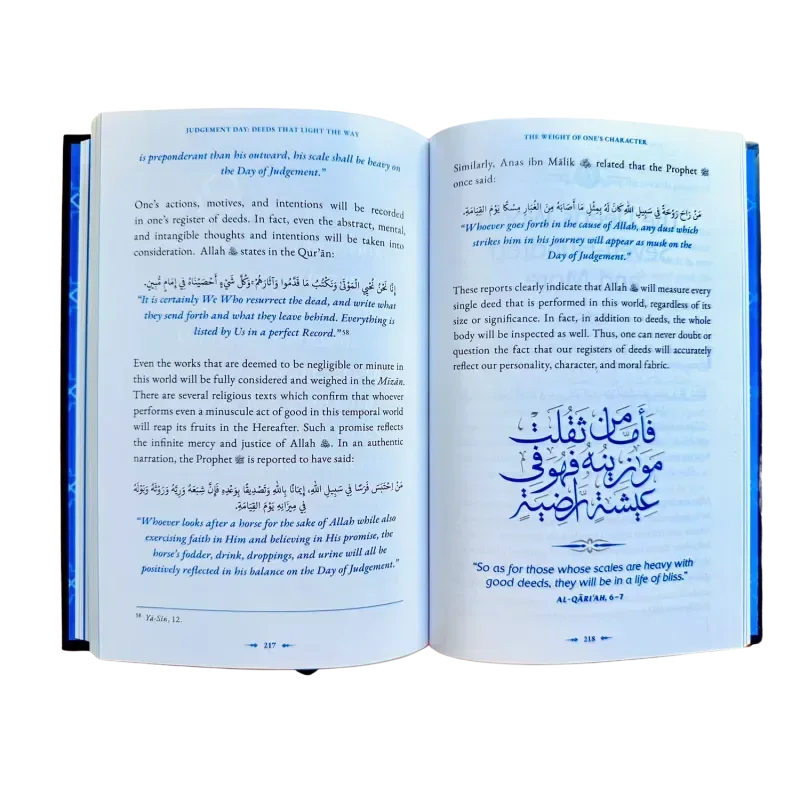 JUDGEMENT DAY: DEEDS THAT LIGHT THE WAY
is preponderant than his outward, his scale shall be heavy on
the Day of Judgement.”
One’s actions, motives, and intentions will be recorded
in one’s register of deeds. In fact, even the abstract, mental,
and intangible thoughts and intentions will be taken into
consideration. Allah ﷻ states in the Qur’ān:
إِنَّا نَحْنُ نُحْيِي الْمَوْتَىٰ وَنَكْتُبُ مَا قَدَّمُوا وَآثَارَهُمْ وَكُلَّ شَيْءٍ أَحْصَيْنَاهُ فِي إِمَامٍ مُّبِينٍ.
“It is certainly We Who resurrect the dead, and write what
they send forth and what they leave behind. Everything is
listed by Us in a perfect Record.”58
Even the works that are deemed to be negligible or minute in
this world will be fully considered and weighed in the Mīzān.
There are several religious texts which confirm that whoever
performs even a minuscule act of good in this temporal world
will reap its fruits in the Hereafter. Such a promise reflects
the infinite mercy and justice of Allah ﷻ. In an authentic
narration, the Prophet ﷺ is reported to have said:
مَنِ احْتَبَسَ فَرَسًا فِي سَبِيلِ اللهِ، إِيمَانًا بِاللهِ وَتَصْدِيقًا بِوَعْدِهِ، فَإِنَّ شِبَعَهُ وَرِيَّهُ وَرَوْثَهُ وَبَوْلَهُ
فِي مِيزَانِهِ يَوْمَ الْقِيَامَةِ.
“Whoever looks after a horse for the sake of Allah while also
exercising faith in Him and believing in His promise, the
horse’s fodder, drink, droppings, and urine will all be
positively reflected in his balance on the Day of Judgement.”
58 Yā-Sīn, 12.
217
THE WEIGHT OF ONE’S CHARACTER
Similarly, Anas ibn Mālik related that the Prophet ﷺ
once said:
مَنْ رَاحَ رَوْحَةً فِي سَبِيلِ اللهِ كَانَ لَهُ بِمِثْلِ مَا أَصَابَهُ مِنَ الْغُبَارِ مِسْكًا يَوْمَ الْقِيَامَةِ.
“Whoever goes forth in the cause of Allah, any dust which
strikes him in his journey will appear as musk on the
Day of Judgement.”
These reports clearly indicate that Allah ﷻ will measure every
single deed that is performed in this world, regardless of its
size or significance. In fact, in addition to deeds, the whole
body will be inspected as well. Thus, one can never doubt or
question the fact that our registers of deeds will accurately
reflect our personality, character, and moral fabric.
فَأَمَّا مَن ثَقُلَتْ
مَوَٰزِينُهُۥ فَهُوَ فِى
عِيشَةٍ رَّاضِيَةٍ
“So as for those whose scales are heavy with
good deeds, they will be in a life of bliss.”
AL-QĀRI’AH, 6–7
218